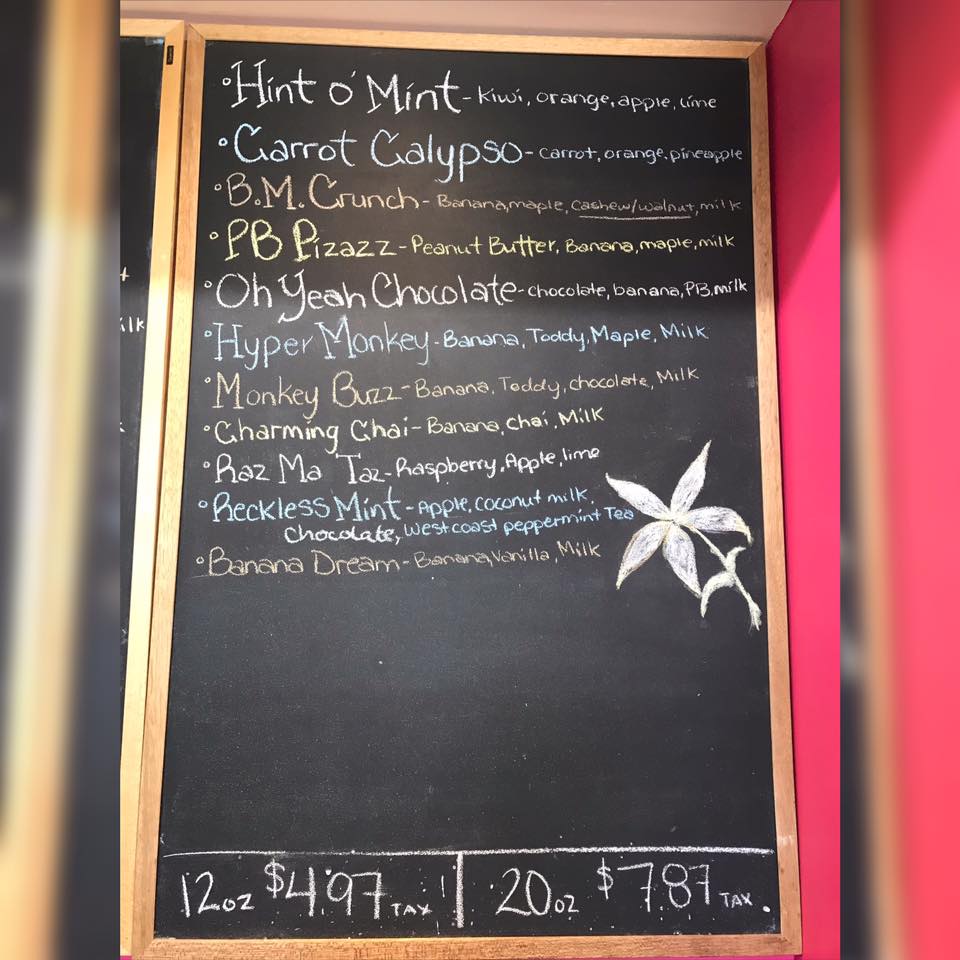 °Hint o' Mint - Kiwi, orange, apple, lime
°Carrot Calypso - carrot, orange, pineapple
°B.M. Crunch - Banana, maple, cashew/walnut, milk
°PB Pizazz - Peanut Butter, Banana, maple, milk
°Oh Yeah Chocolate - chocolate, banana, PB, milk
°Hyper Monkey - Banana, Toddy, Maple, Milk
°Monkey Buzz - Banana, Toddy, chocolate, Milk
°Charming Chai - Banana, chai, Milk
°Raz Ma Taz - Raspberry, Apple, lime
°Reckless Mint - Apple, coconut milk,
Chocolate, West coast peppermint Tea
°Banana Dream - Banana, Vanilla, Milk
12oz $4.97 TAX 20oz $7.87 TAX